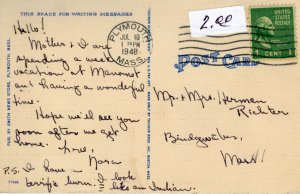 THIS SPACE FOR WRITING MESSAGES
Hello!
Mother & I are
spending a week's
vacation at Manomet
and having a wonderful
time.
Hope we'll see you
soon after we get
home. Love,
Nora
P.S. I have a
terrific burn. I look
like an Indian.
PUB. BY SMITH NEWS STORE, PLYMOUTH, MASS.
PLYMOUTH
JUL 10
PM
1948
MASS.
2.00
UNITED STATES
POSTAGE
1 CENT
POST CARD
Mr. & Mrs. Herman
Richter
Bridgewater,
Mass.